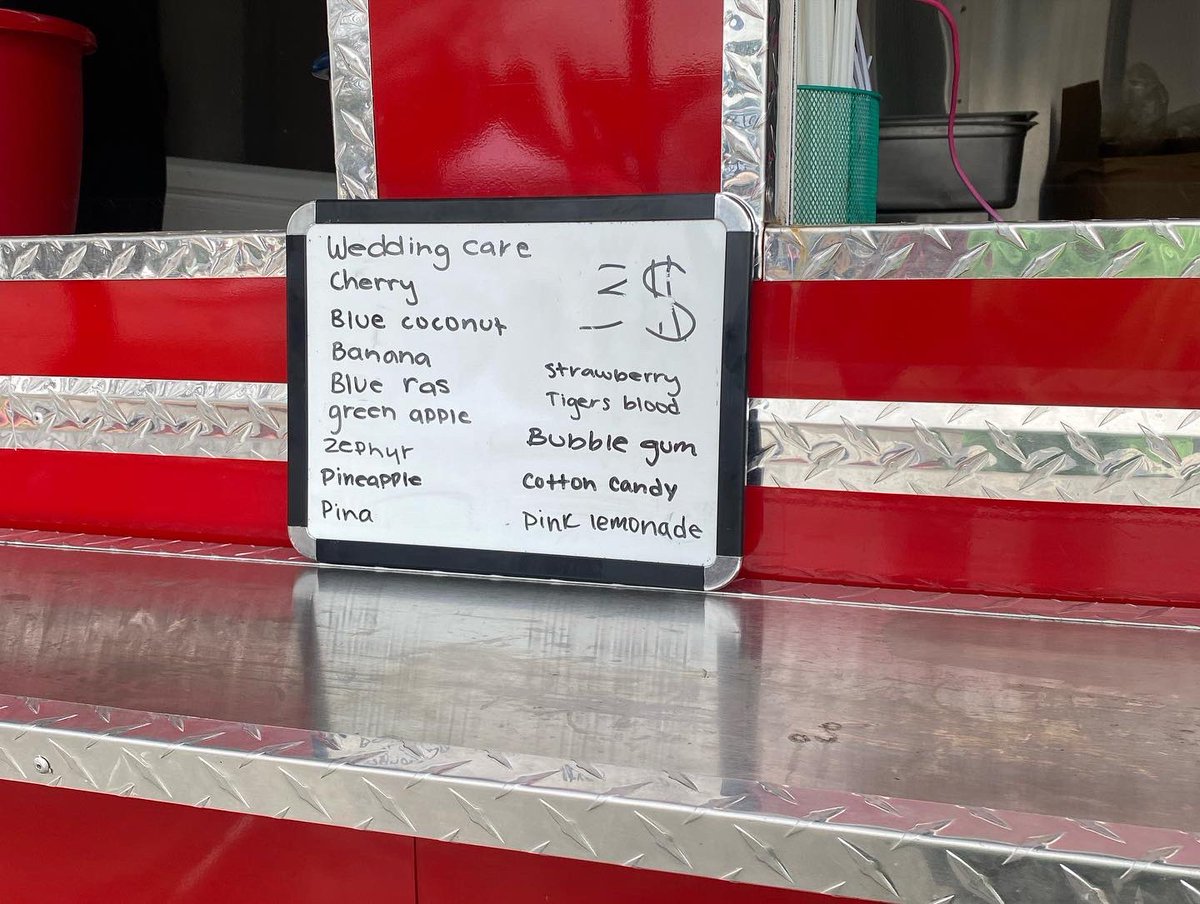 Wedding care
Cherry
Blue coconut
Banana
Blue ras
green apple
Zephyr
Pineapple
Pina
3$
Strawberry
Tigers blood
Bubble gum
Cotton candy
Pink lemonade